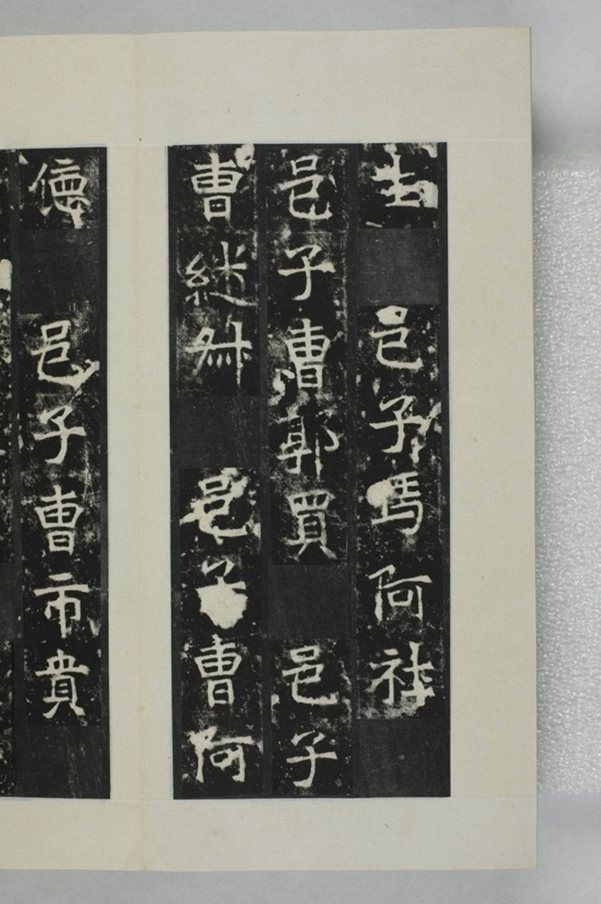 邑子馬阿社
邑子曹郭買 邑子
曹継 邑子曹阿
德 邑子曹市貴